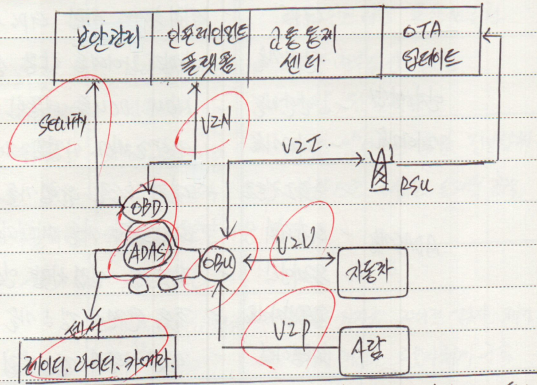 보안관리
인포테인먼트
플랫폼
교통통제
센터
OTA
업데이트
Security
V2N
V2I
RSU
OBD
ADAS
OBU
V2V
자동차
센서
V2P
사람
레이더. 라이더. 카메라.